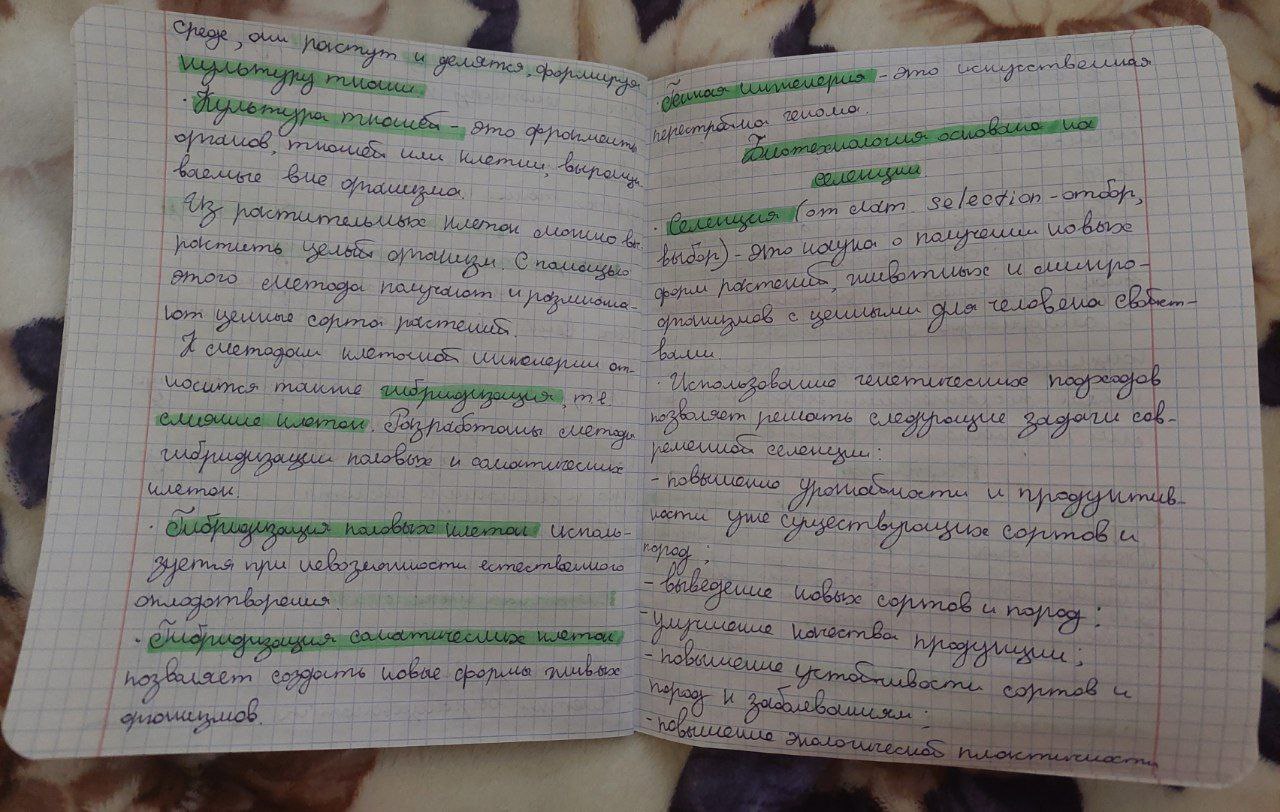 среде, они растут и делятся, формируя
культуру ткани.
· Культура тканей - это фрагменты
органов, тканей или клетки, выращи-
ваемые вне организма.
Из растительных клеток можно вы-
растить целый организм. С помощью
этого метода получают и размножа-
ют ценные сорта растений.
К методам клеточной инженерии от-
носится также гибридизация, т.е.
слияние клеток. Разработаны методы
гибридизации половых и соматических
клеток.
· Гибридизация половых клеток исполь-
зуется при невозможности естественного
оплодотворения.
· Гибридизация соматических клеток
позволяет создать новые формы живых
организмов.
· Генная инженерия - это искусственная
перестройка генома.
Биотехнология основана на
селекции.
· Селекция (от лат. selection - отбор,
выбор) - это наука о получении новых
форм растений, животных и микро-
организмов с ценными для человека свойст-
вами.
· Использование генетических подходов
позволяет решать следующие задачи сов-
ременной селекции:
- повышение урожайности и продуктив-
ности уже существующих сортов и
пород;
- выведение новых сортов и пород;
- улучшение качества продукции;
- повышение устойчивости сортов и
пород к заболеваниям;
- повышение экологической пластичности